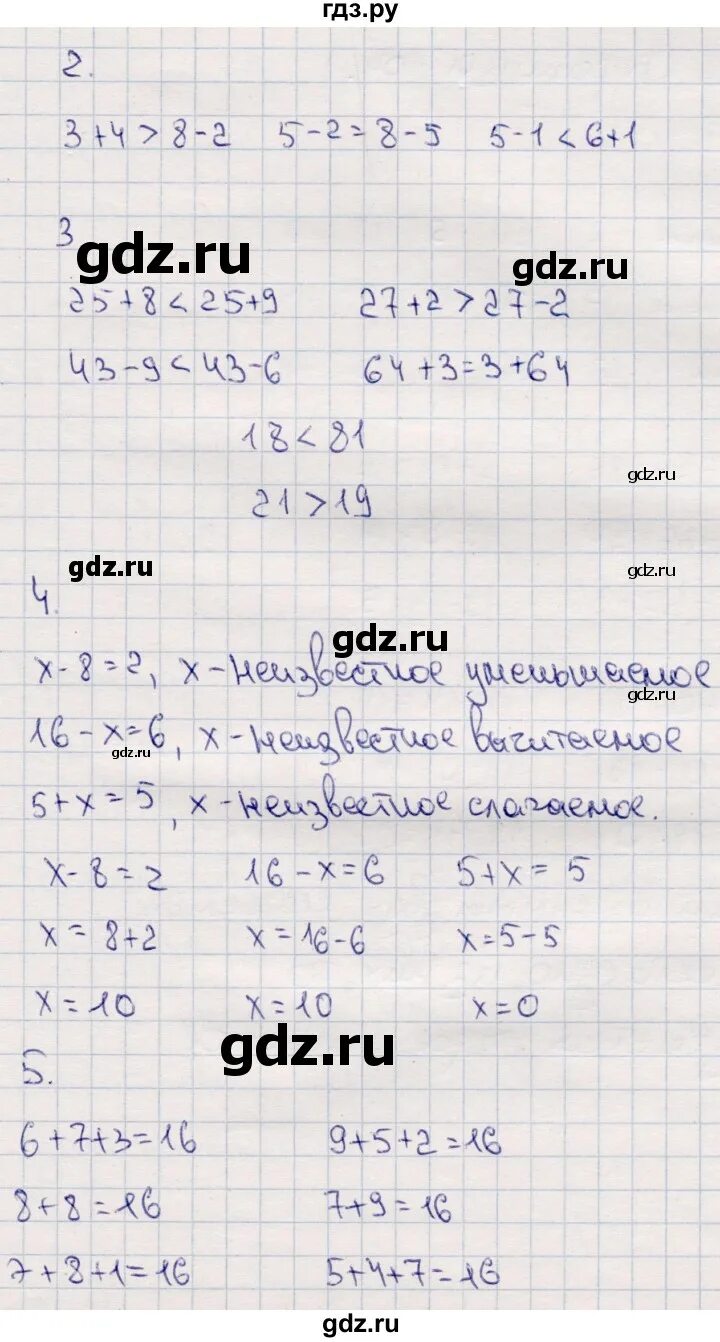 гдз.ру
2.
3+4>8-2 5-2=8-5 5-1<6+1
3
gdz.ru
gdz.ru
25+8<25+9 27+2>27-2
43-9<43-6 64+3=3+64
18<81
gdz.ru
21>19
gdz.ru
gdz.ru
4.
gdz.ru
x-8=2, x-неизвестное уменьшаемое
gdz.ru
16-x=6, x-неизвестное вычитаемое
gdz.ru
5+x=5, x-неизвестное слагаемое.
x-8=2 16-x=6 5+x=5
x=8+2 x=16-6 x=5-5
x=10 x=10 x=0
gdz.ru
5.
6+7+3=16 9+5+2=16
8+8=16 7+9=16
7+8+1=16 5+4+7=16
gdz.ru